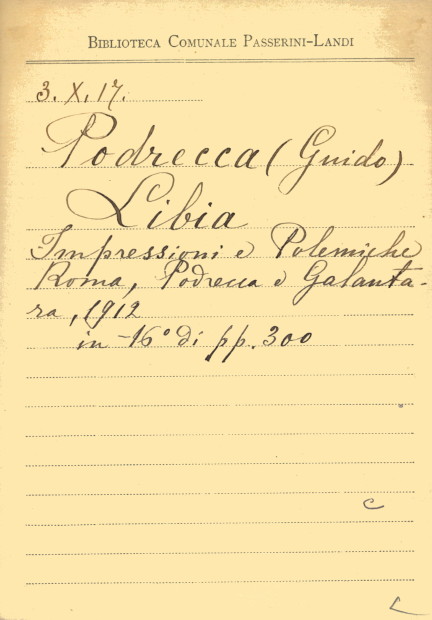 BIBLIOTECA COMUNALE PASSERINI-LANDI
3. X. 17.
Podrecca (Guido)
Libia
Impressioni e Polemiche
Roma, Podrecca e Galanta-
ra, 1912
in -16° di pp. 300
c
L